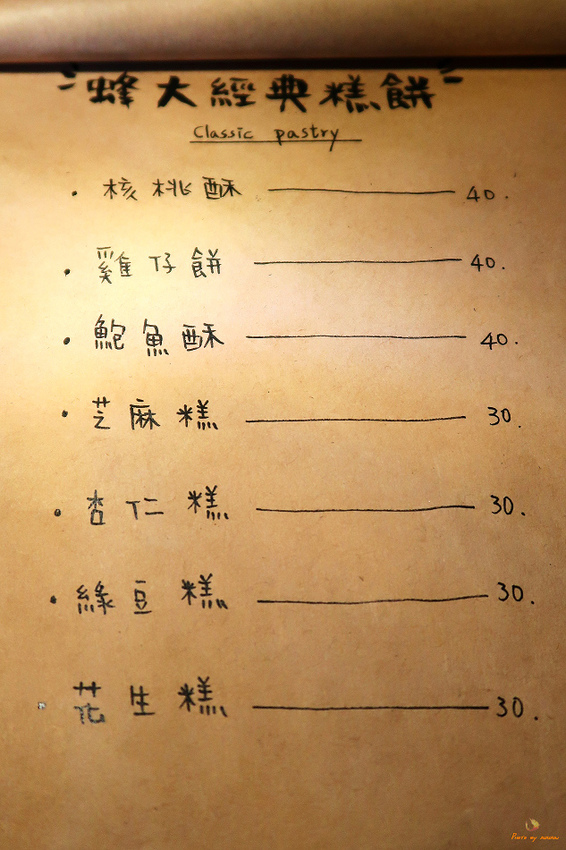 蜂大經典糕餅
Classic pastry
核桃酥 40.
雞仔餅 40.
鮑魚酥 40.
芝麻糕 30.
杏仁糕 30.
綠豆糕 30.
花生糕 30.